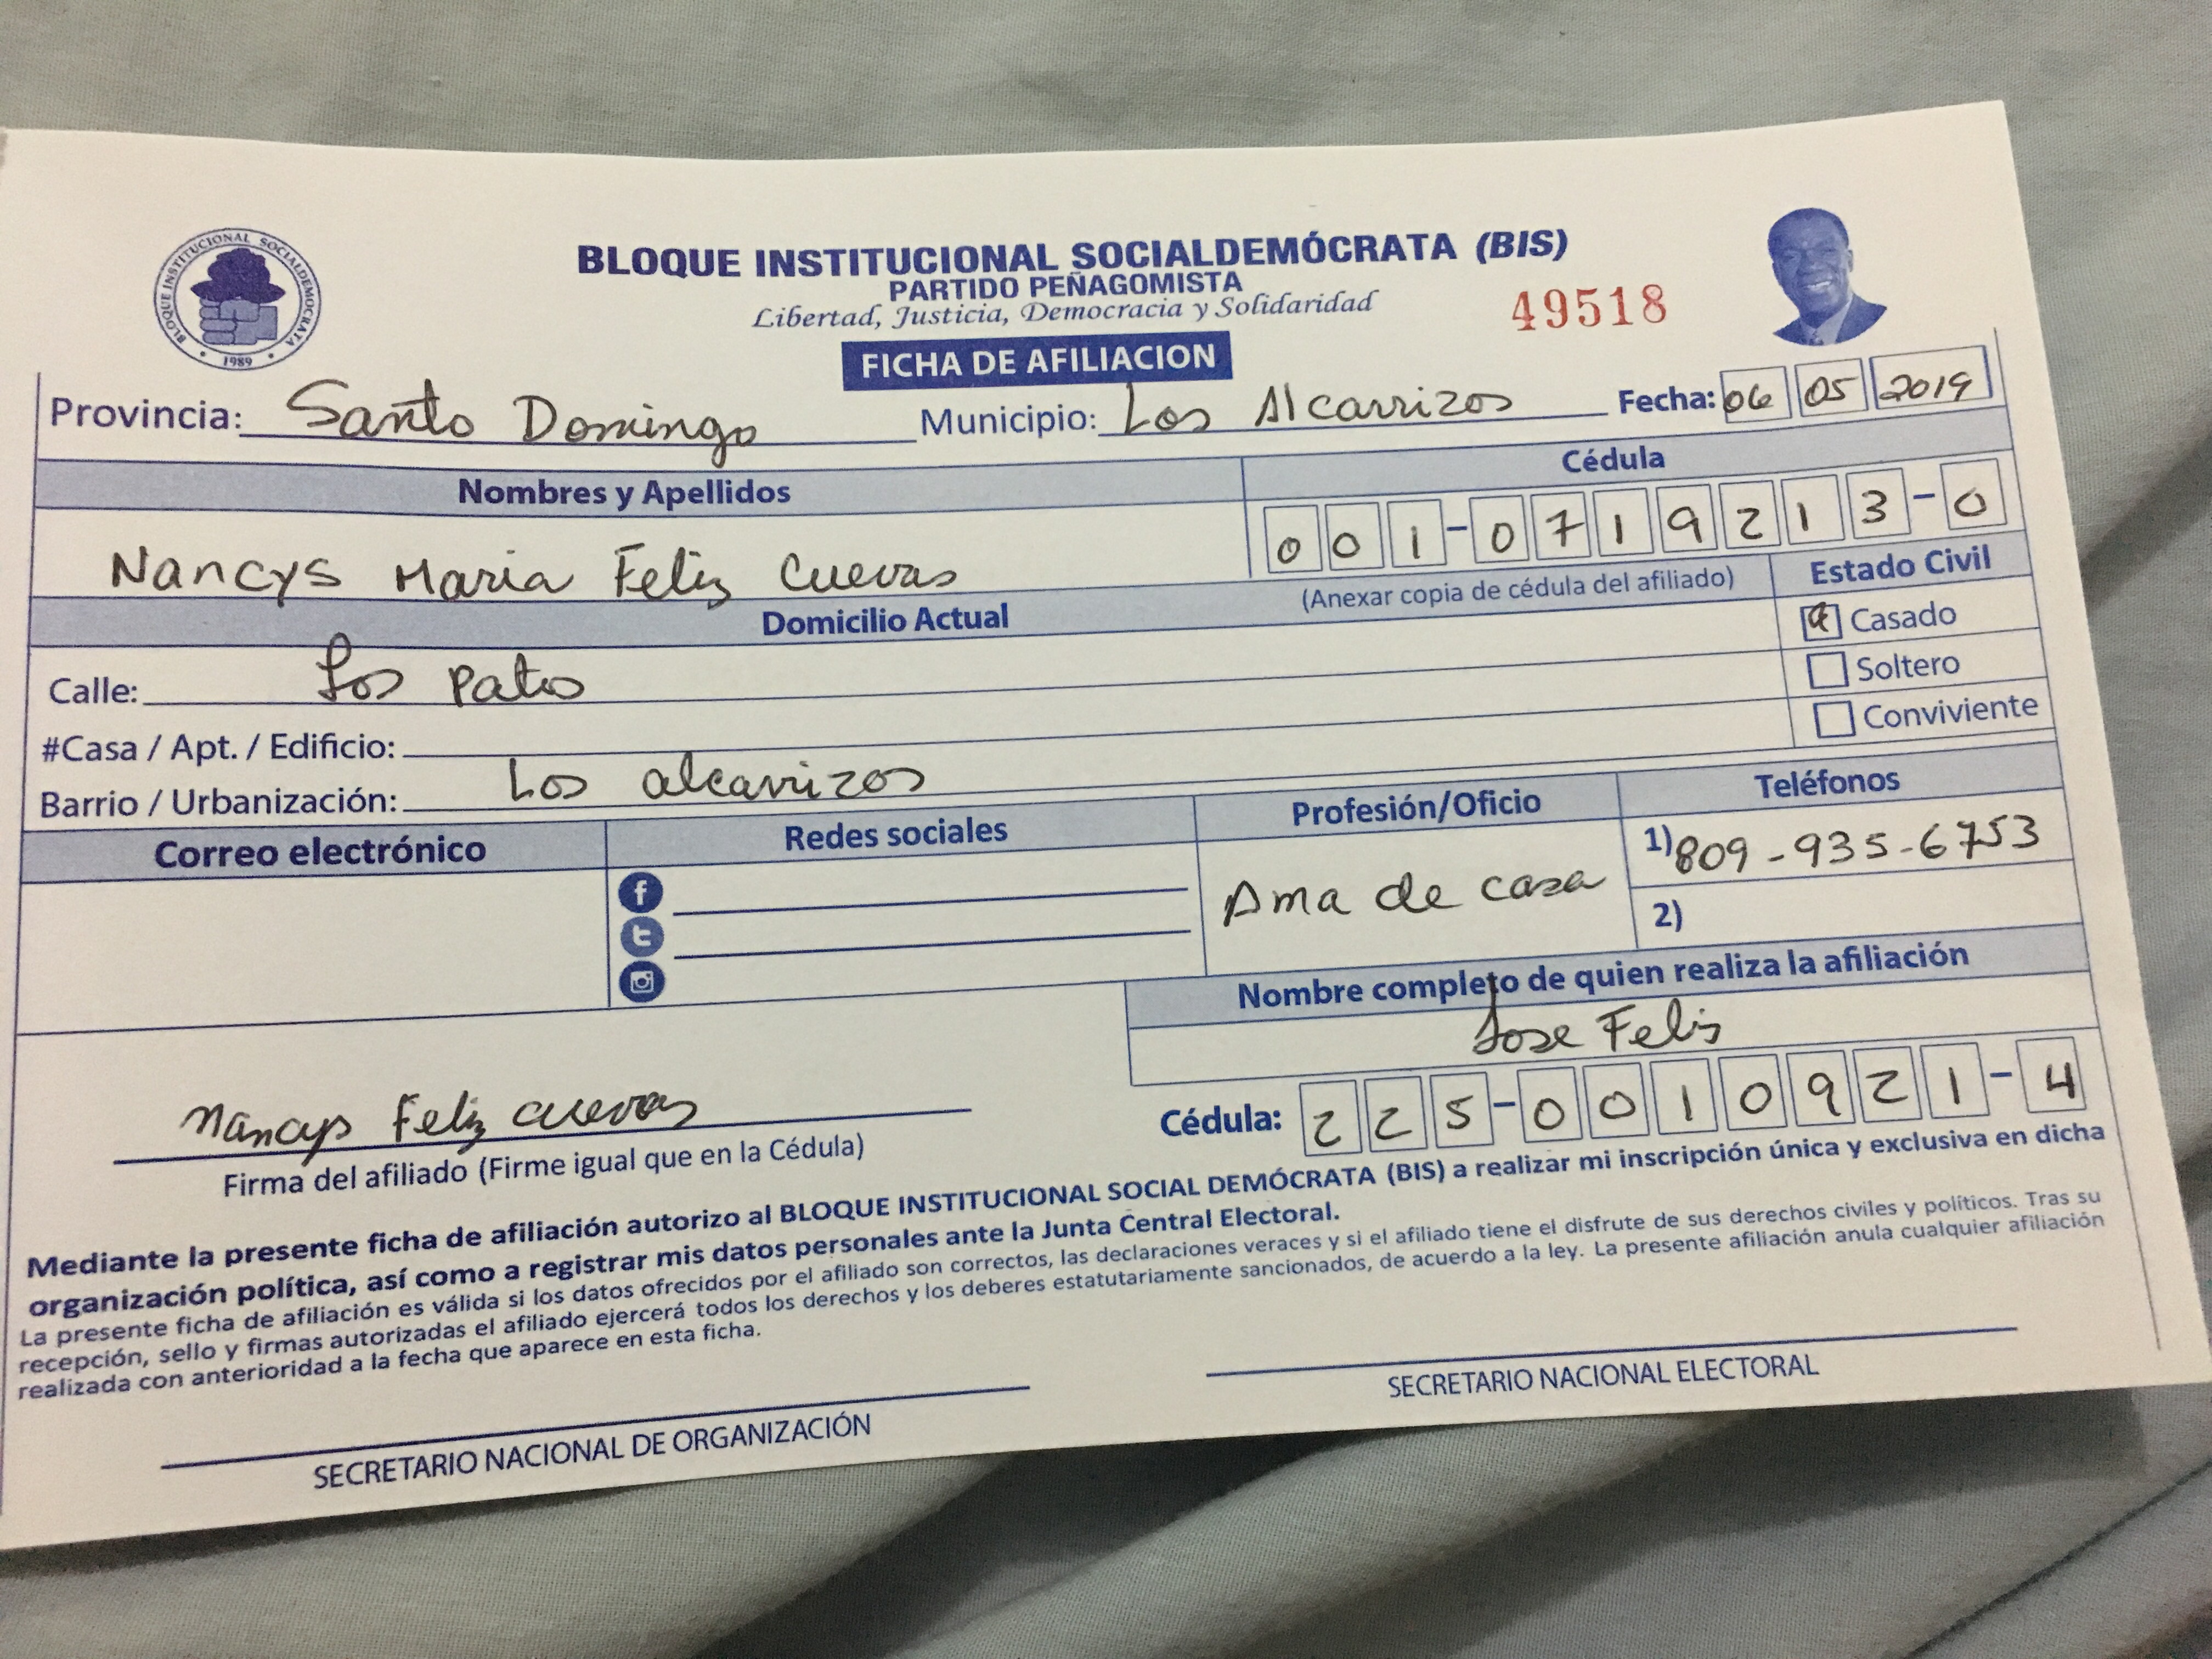 BLOQUE INSTITUCIONAL SOCIALDEMOCRATA
1989
BLOQUE INSTITUCIONAL SOCIALDEMÓCRATA (BIS)
PARTIDO PEÑAGOMISTA
Libertad, Justicia, Democracia y Solidaridad
49518
FICHA DE AFILIACION
Provincia: Santo Domingo Municipio: Los Alcarrizos Fecha: 06 05 2019
Nombres y Apellidos Cédula
Nancys Maria Feliz Cuevas 001-0719213-0
(Anexar copia de cédula del afiliado) Estado Civil
Domicilio Actual
Casado
Calle: Los Patos
Soltero
#Casa / Apt. / Edificio:
Conviviente
Barrio / Urbanización: Los alcarrizos
Correo electrónico Redes sociales Profesión/Oficio Teléfonos
1) 809-935-6753
f
Ama de casa
t
2)
Nombre completo de quien realiza la afiliación
Jose Felis
Nancys Feliz Cuevas
Cédula: 225-0010921-4
Firma del afiliado (Firme igual que en la Cédula)
Mediante la presente ficha de afiliación autorizo al BLOQUE INSTITUCIONAL SOCIAL DEMÓCRATA (BIS) a realizar mi inscripción única y exclusiva en dicha
organización política, así como a registrar mis datos personales ante la Junta Central Electoral.
La presente ficha de afiliación es válida si los datos ofrecidos por el afiliado son correctos, las declaraciones veraces y si el afiliado tiene el disfrute de sus derechos civiles y políticos. Tras su
recepción, sello y firmas autorizadas el afiliado ejercerá todos los derechos y los deberes estatutariamente sancionados, de acuerdo a la ley. La presente afiliación anula cualquier afiliación
realizada con anterioridad a la fecha que aparece en esta ficha.
SECRETARIO NACIONAL DE ORGANIZACIÓN
SECRETARIO NACIONAL ELECTORAL